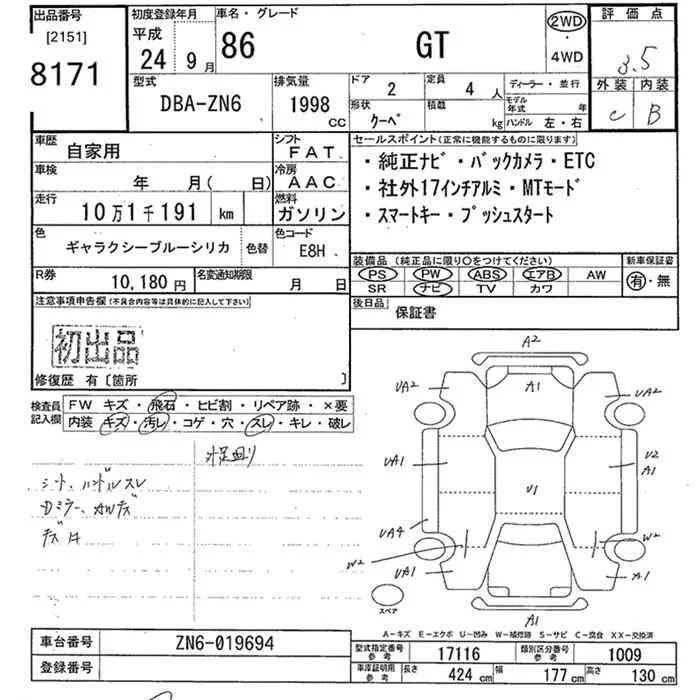 出品番号
[2151]
8171
初度登録年月
平成
24年 9月
車名・グレード
86 GT
2WD
・
4WD
評価点
3.5
外装 内装
C B
型式
DBA-ZN6
排気量
1998
CC
ドア
2
定員
4 人
ディーラー・並行
形状
クーペ
積載
kg
モデル年式 年
ハンドル 左・右
車歴
自家用
シフト
FAT
車検
年 月( 日)
冷房
AAC
走行
10万1千191 km
燃料
ガソリン
色
ギャラクシーブルーシリカ
色替
色コード
E8H
R券
10,180円
名変通知期限
月 日
セールスポイント(正常に機能するものに限ります)
・純正ナビ・バックカメラ・ETC
・社外17インチアルミ・MTモード
・スマートキー・プッシュスタート
装備品(純正品に限り○をつけてください)
新車保証書
PS PW ABS エアB AW
SR ナビ TV カワ
有・無
後日品
保証書
注意事項申告欄(不具合内容等は具体的に記入して下さい)
初出品
修復歴 有〔箇所 〕
検査員記入欄
FW キズ・飛石・ヒビ割・リペア跡・×要
内装 キズ・汚レ・コゲ・穴・スレ・キレ・破レ
シート、ハンドルスレ
Dミラー、AWキズ
A2
A1
UA2
UA2
UA1
U2
A1
U1
UA4
W2
W2
UA1
A1
A1
スペア
A-キズ E-エクボ U-凹み W-補修跡 S-サビ C-腐食 XX-交換済
車台番号
ZN6-019694
登録番号
型式指定番号
参考
17116
類別区分番号
参考
1009
車庫証明用
参考
長さ 424 cm 幅 177 cm 高さ 130 cm